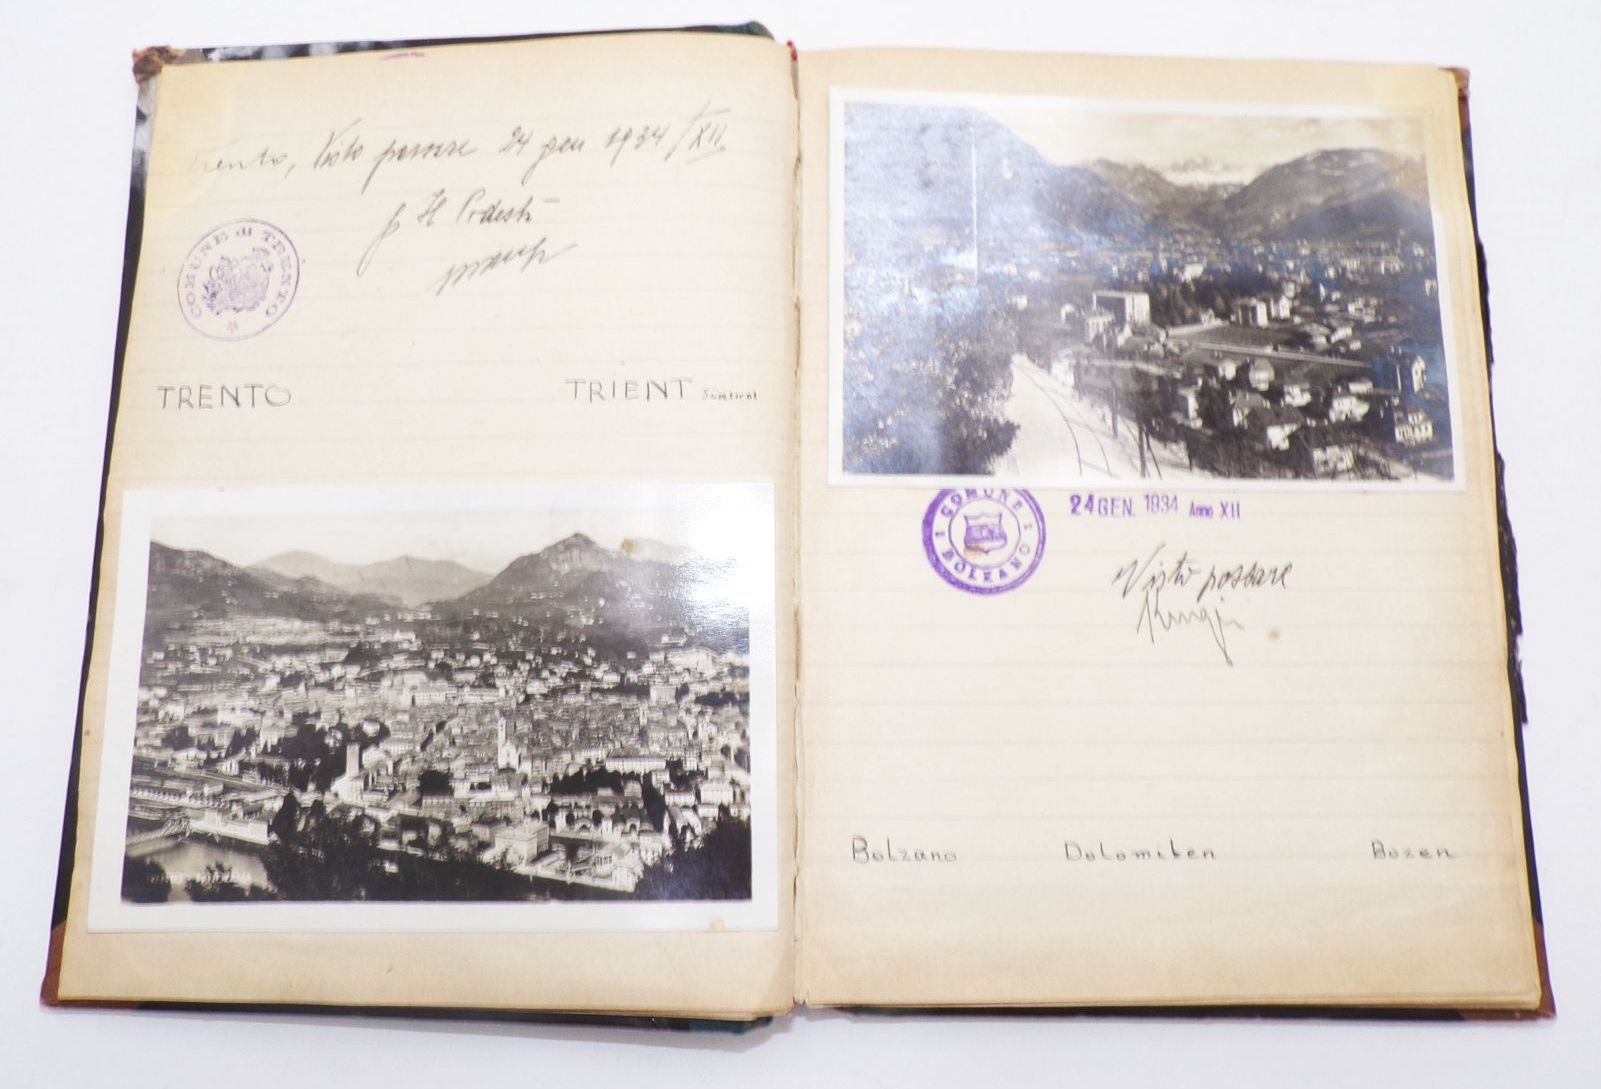 Trento, Visto passare 24 gen 1934/XII
p Il Podestà
COMUNE di TRENTO
TRENTO TRIENT Südtirol
COMUNE BOLZANO
24 GEN. 1934 Anno XII
Visto passare
Bolzano Dolomiten Bozen